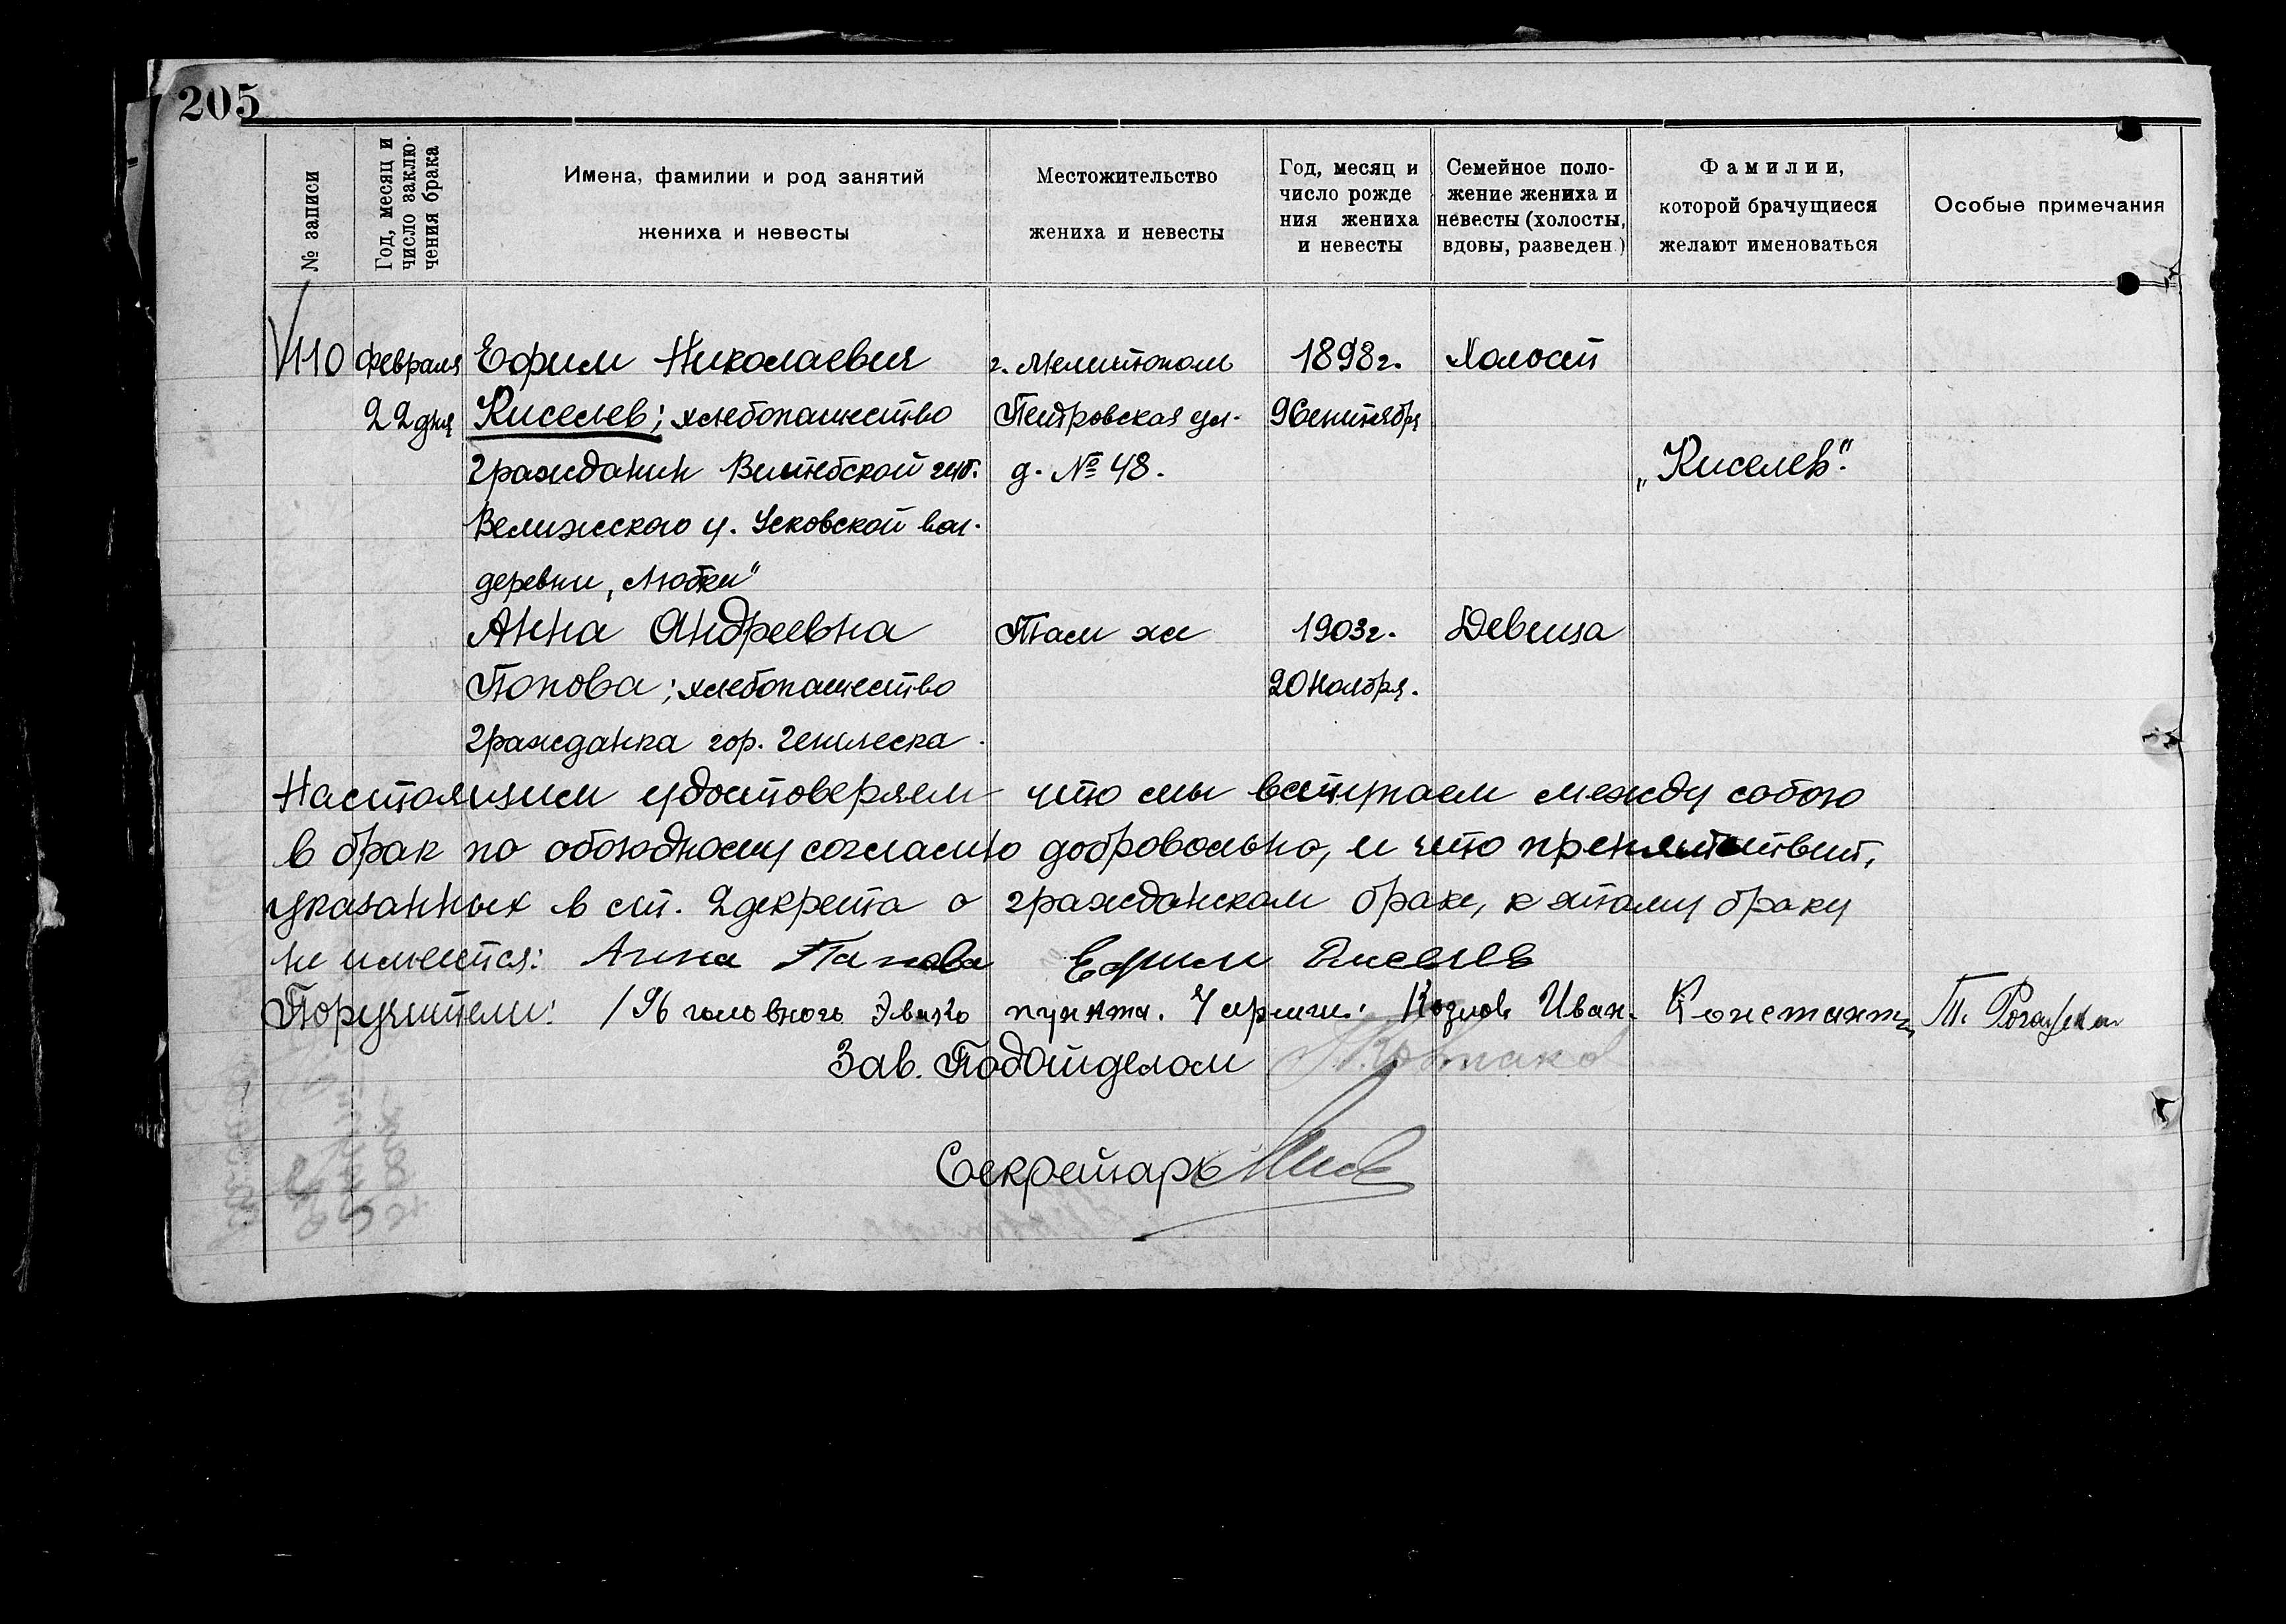 205
№ записи
Год, месяц и число заклю-
чения брака
Имена, фамилии и род занятий
жениха и невесты
Местожительство
жениха и невесты
Год, месяц и
число рожде
ния жениха
и невесты
Семейное поло-
жение жениха и
невесты (холосты,
вдовы, разведен.)
Фамилии,
которой брачущиеся
желают именоваться
Особые примечания
110 февраля Ефим Николаевич г. Мелитополь 1898г. Холост
22 дня Киселев; хлебопашество Петровская ул. 9 Сентября
гражданин Витебской губ. д. № 48. „Киселев“.
Велижского у. Усковской вол.
деревни „Любки“
Анна Андреевна Там же 1903г. Девица
Попова; хлебопашество 20 Ноября.
гражданка гор. Геническа.
Настоящим удостоверяем что мы вступаем между собою
в брак по обоюдному согласию добровольно, и что препятствий,
указанных в ст. 2 декрета о гражданском браке, к этому браку
не имеется: Анна Папова Ефим Киселев
Поручители: 196 головного Эвако пункта. 4 армии: Козлов Иван. Константин Т.
Зав. Подотделом
Секретарь